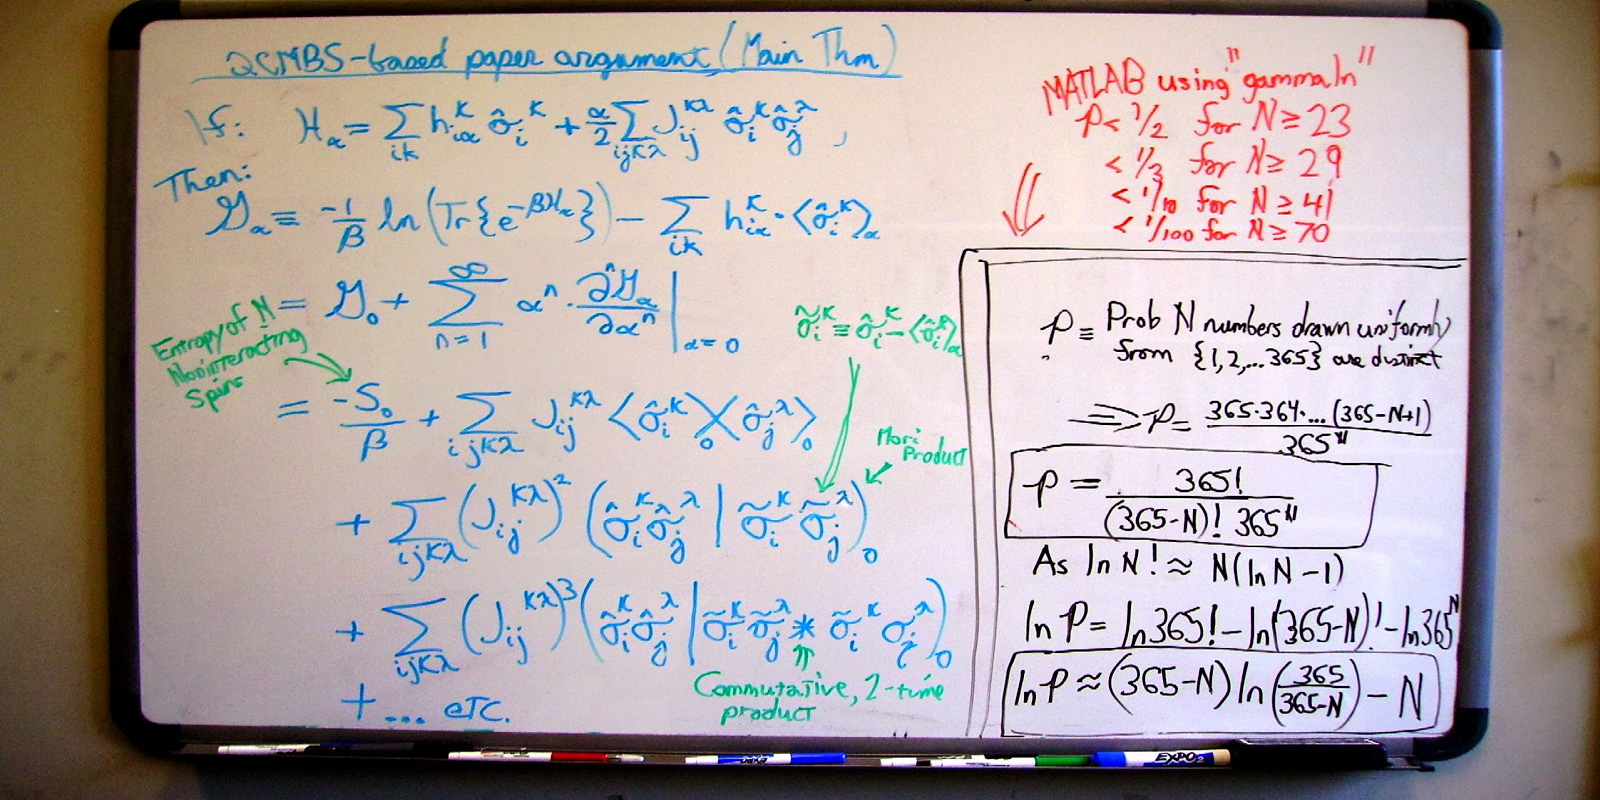 QCMBS-based paper argument (Main Thm)
If: H_α = ∑_{ik} h_{iα}^κ σ̂_i^κ + α/2 ∑_{ijκλ} J_{ij}^{κλ} σ̂_i^κ σ̂_j^λ ,
Then:
𝒢_α ≡ -1/β ln(Tr{e^{-βH_α}}) - ∑_{ik} h_{iα}^κ · ⟨σ̂_i^κ⟩_α
= 𝒢_0 + ∑_{n=1}^{∞} α^n · ∂^n𝒢_α/∂α^n |_{α=0}
σ̃_i^κ ≡ σ̂_i^κ - ⟨σ̂_i^κ⟩_α
Entropy of N
Noninteracting
Spins
= -S_0/β + ∑_{ijκλ} J_{ij}^{κλ} ⟨σ̂_i^κ⟩_0⟨σ̂_j^λ⟩_0
Mori
Product
+ ∑_{ijκλ} (J_{ij}^{κλ})^2 (σ̂_i^κ σ̂_j^λ | σ̃_i^κ σ̃_j^λ)_0
+ ∑_{ijκλ} (J_{ij}^{κλ})^3 (σ̂_i^κ σ̂_j^λ | σ̃_i^κ σ̃_j^λ * σ̃_i^κ σ_j^λ)_0
Commutative, 2-time
product
+ ... etc.
MATLAB using "gammaln"
p < 1/2 for N ≥ 23
< 1/3 for N ≥ 29
< 1/10 for N ≥ 41
< 1/100 for N ≥ 70
p ≡ Prob N numbers drawn uniformly
from {1,2,...365} are distinct
⟹ p = 365·364·...(365-N+1)/365^N
p = 365!/((365-N)! 365^N)
As ln N! ≈ N(ln N - 1)
ln P = ln365! - ln(365-N)! - ln365^N
ln P ≈ (365-N) ln(365/(365-N)) - N
EXPO